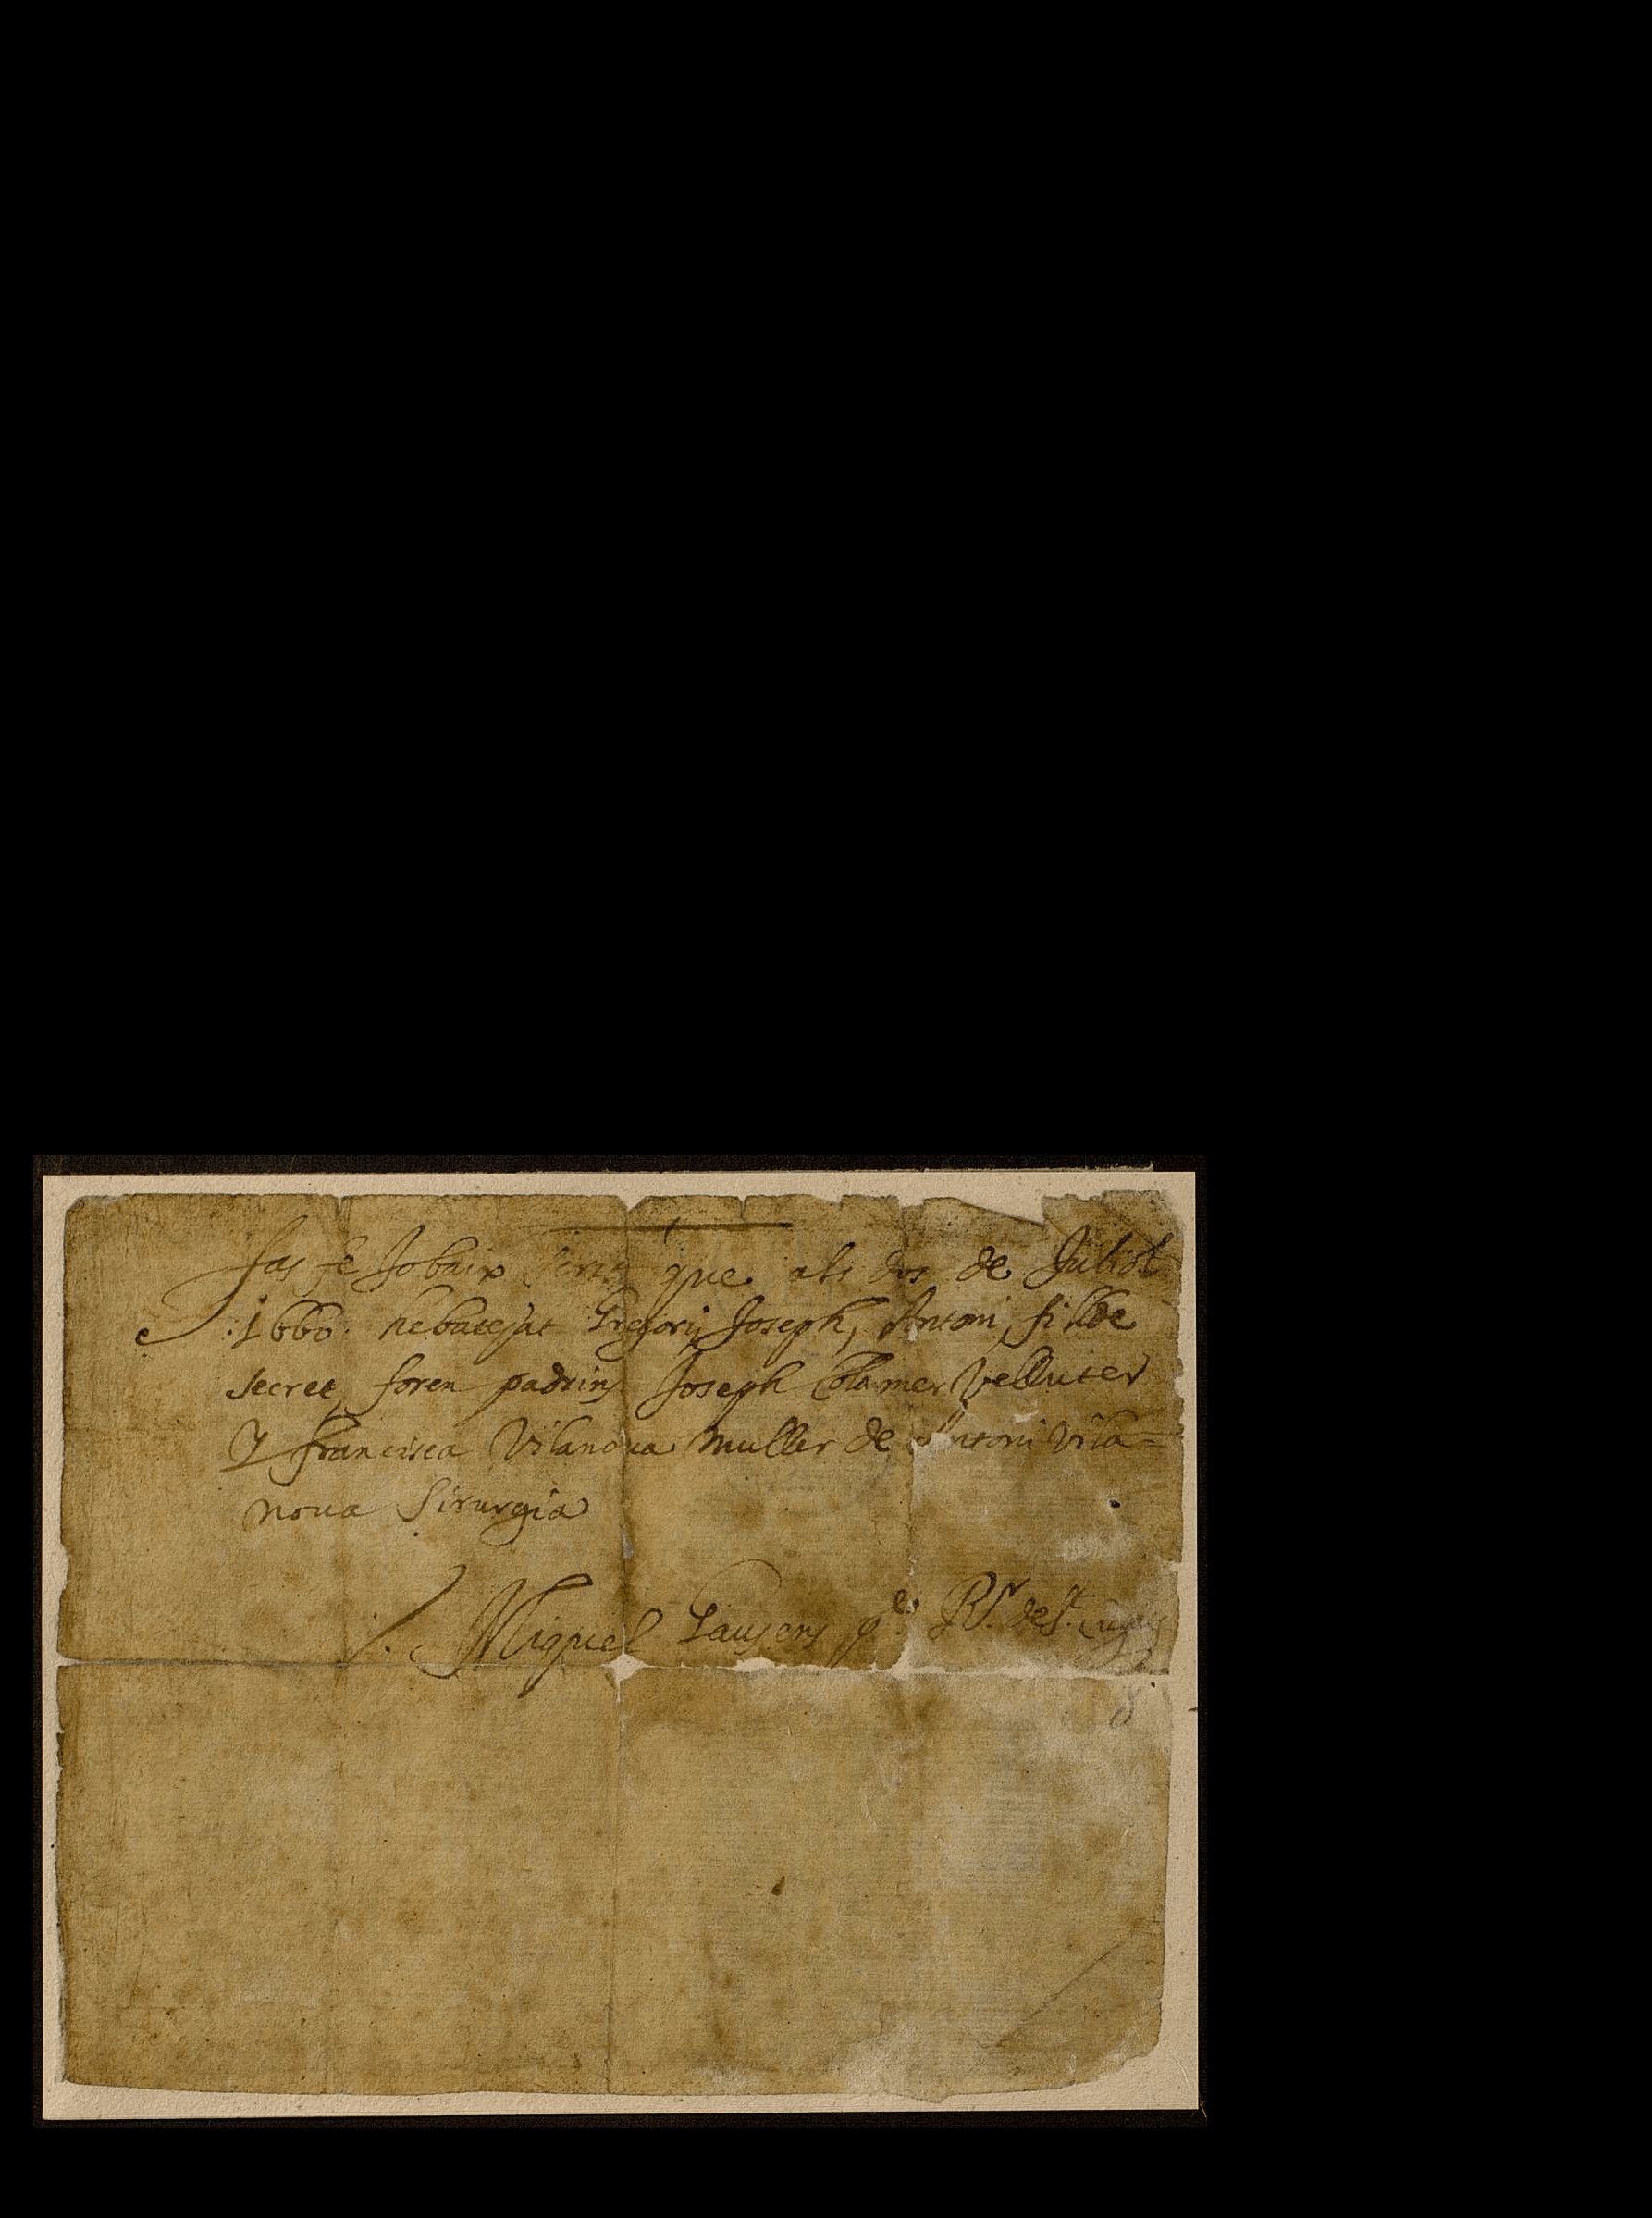 fas fe Jo baix firmat que als dos de Juliol
.1660. he batejat Gregori, Joseph, Antoni, fill de
secret, foren padrins Joseph Colomer velluter
Y francisca Vilanova muller de Antoni Vila=
nova Sirurgia
Miquel Gausens pe. Rr. de St. Cugat